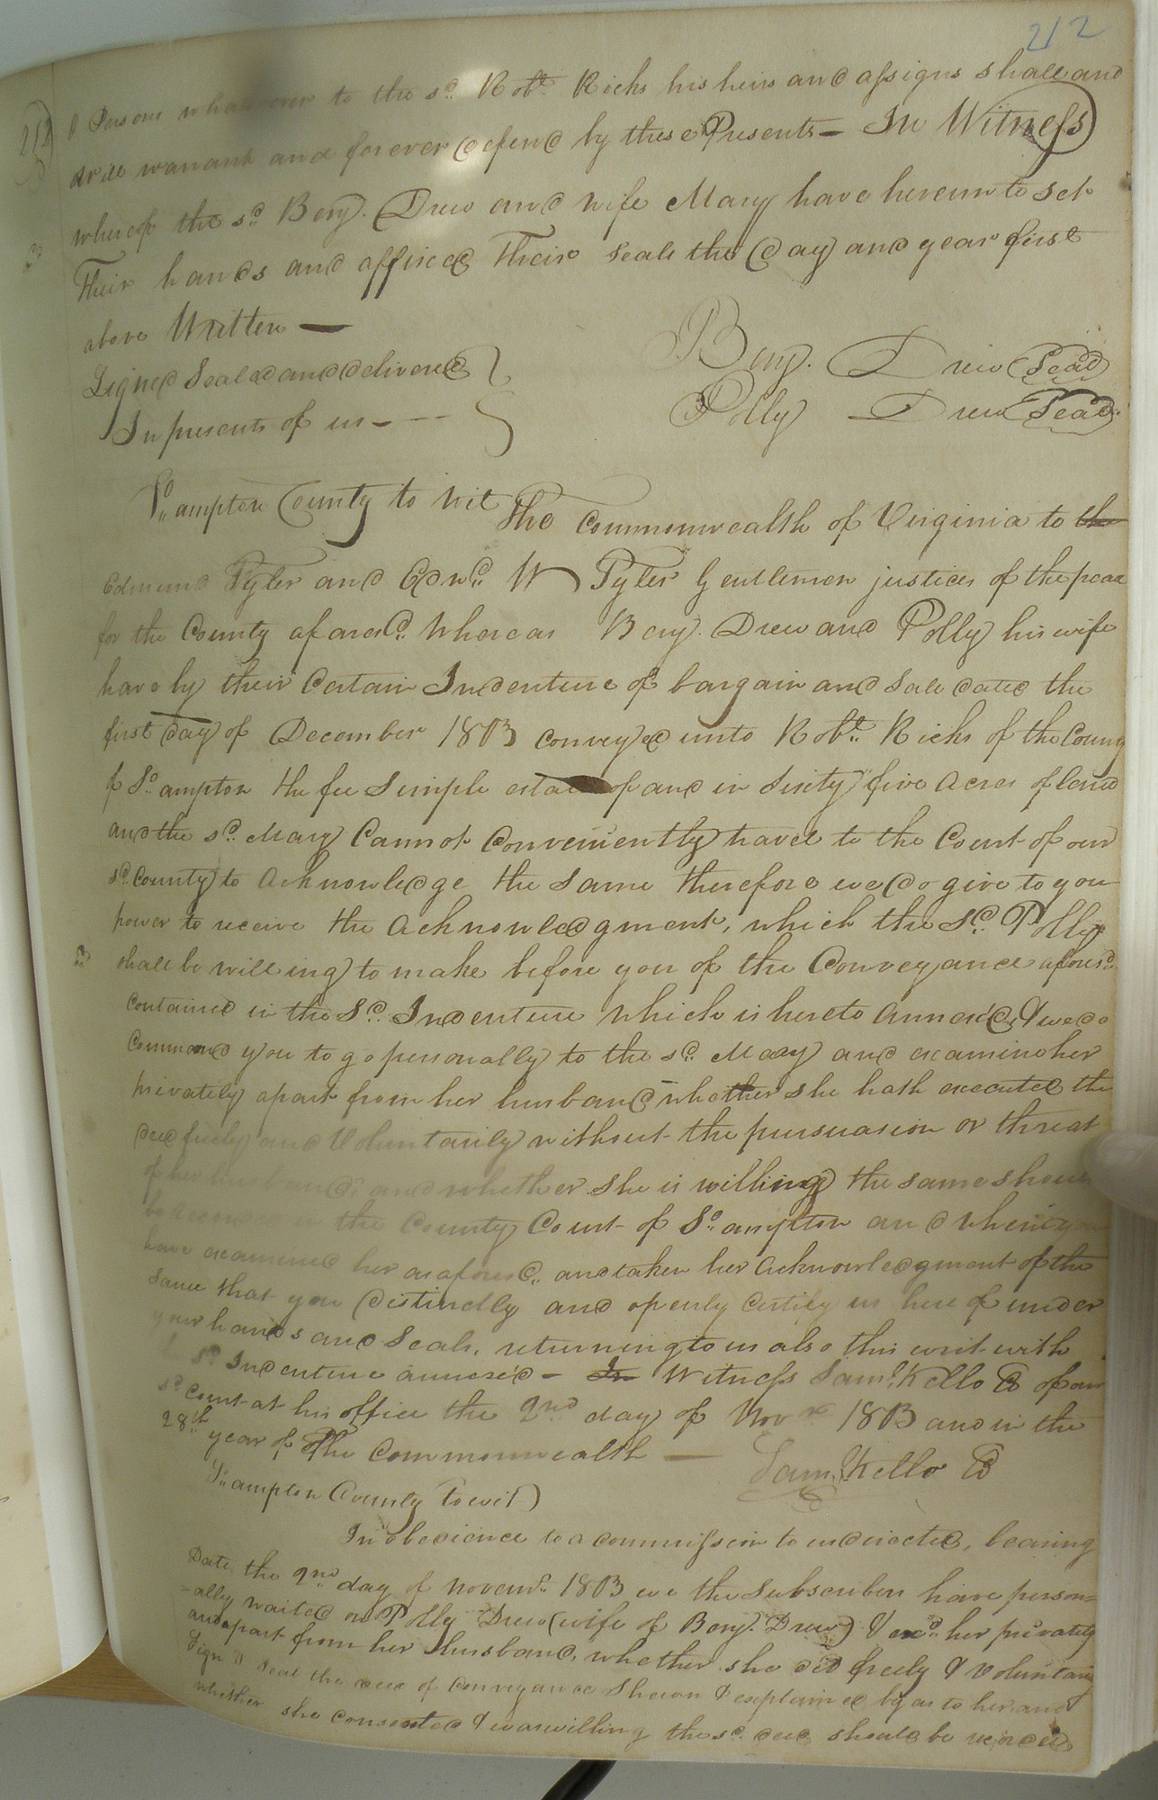 212
212
& Persons whatsoever to the sd. Robt. Ricks his heirs and assigns shall and
will warrant and forever defend by these Presents — In Witness
whereof the sd. Benj. Drew and wife Mary have hereunto set
Their hands and affixed Their seals the day and year first
above Written —
Signed Sealed and delivered
In presents of us —
Benj. Drew Seal
Polly Drew Seal
So. ampton County to wit The Commonwealth of Virginia to the
Edmund Tyler and Edwd. W Tyler Gentlemen justices of the peace
for the County aforesd. Whereas Benj. Drew and Polly his wife
have by their Certain Indenture of bargain and Sale dated the
first day of December 1803 conveyed unto Robt. Ricks of the County
of So. ampton the fee Simple estate of and in Sixty five Acres of land
and the sd. Mary Cannot Conveniently travel to the Court of our
sd. County to Acknowledge the Same therefore we do give to you
power to receive the Acknowledgment, which the Sd. Polly
shall be willing to make before you of the Conveyance aforesd.
contained in the Sd. Indenture which is hereto Annex'd, & we do
Command you to go personally to the sd. Mary and examine her
privately apart from her husband whether she hath executed the
deed freely and Voluntarily without the persuasion or threat
of her husband, and whether she is willing the same should
be recorded in the County Court of So. ampton and when you
have examined her as aforesd. and taken her Acknowledgment of the
Same that you distinctly and openly Certify us here of under
your hands and Seals, returning to us also this writ with
sd. Indenture annexed — In Witness Saml. Kello C of our
sd. Court at his office the 2nd day of Novr. 1803 and in the
28th year of the Commonwealth —
Saml. Kello C
So. ampton County Towit)
In obedience to a commission to us directed, bearing
Date the 2nd day of Novemr. 1803 we the Subscribers have person=
=ally waited on Polly Drew (wife of Benj. Drew) & exd. her privately
and apart from her Husband, whether she did freely & voluntarily
Sign & Seal the deed of Conveyance Shewn & explained by us to her and
whether she consented & was willing the sd. deed should be recorded